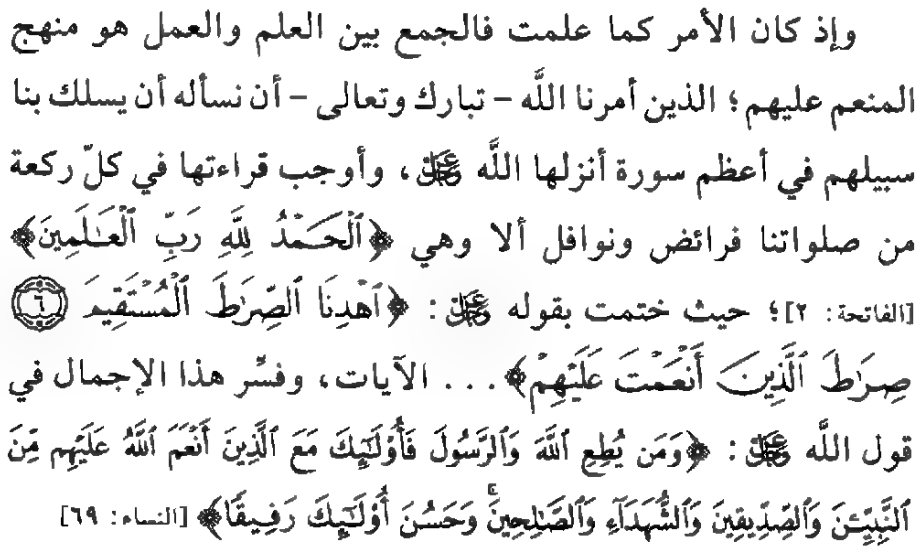 وإذ كان الأمر كما علمت فالجمع بين العلم والعمل هو منهج
المنعم عليهم؛ الذين أمرنا اللَّه – تبارك وتعالى – أن نسأله أن يسلك بنا
سبيلهم في أعظم سورة أنزلها اللَّه ﷿، وأوجب قراءتها في كلّ ركعة
من صلواتنا فرائض ونوافل ألا وهي ﴿ٱلْحَمْدُ لِلَّهِ رَبِّ ٱلْعَـٰلَمِينَ﴾
[الفاتحة: ٢]؛ حيث ختمت بقوله ﷿: ﴿ٱهْدِنَا ٱلصِّرَٰطَ ٱلْمُسْتَقِيمَ ۝٦
صِرَٰطَ ٱلَّذِينَ أَنْعَمْتَ عَلَيْهِمْ﴾... الآيات، وفسِّر هذا الإجمال في
قول اللَّه ﷿: ﴿وَمَن يُطِعِ ٱللَّهَ وَٱلرَّسُولَ فَأُو۟لَـٰٓئِكَ مَعَ ٱلَّذِينَ أَنْعَمَ ٱللَّهُ عَلَيْهِم مِّنَ
ٱلنَّبِيِّـۧنَ وَٱلصِّدِّيقِينَ وَٱلشُّهَدَآءِ وَٱلصَّـٰلِحِينَ ۚ وَحَسُنَ أُو۟لَـٰٓئِكَ رَفِيقًا﴾ [النساء: ٦٩]